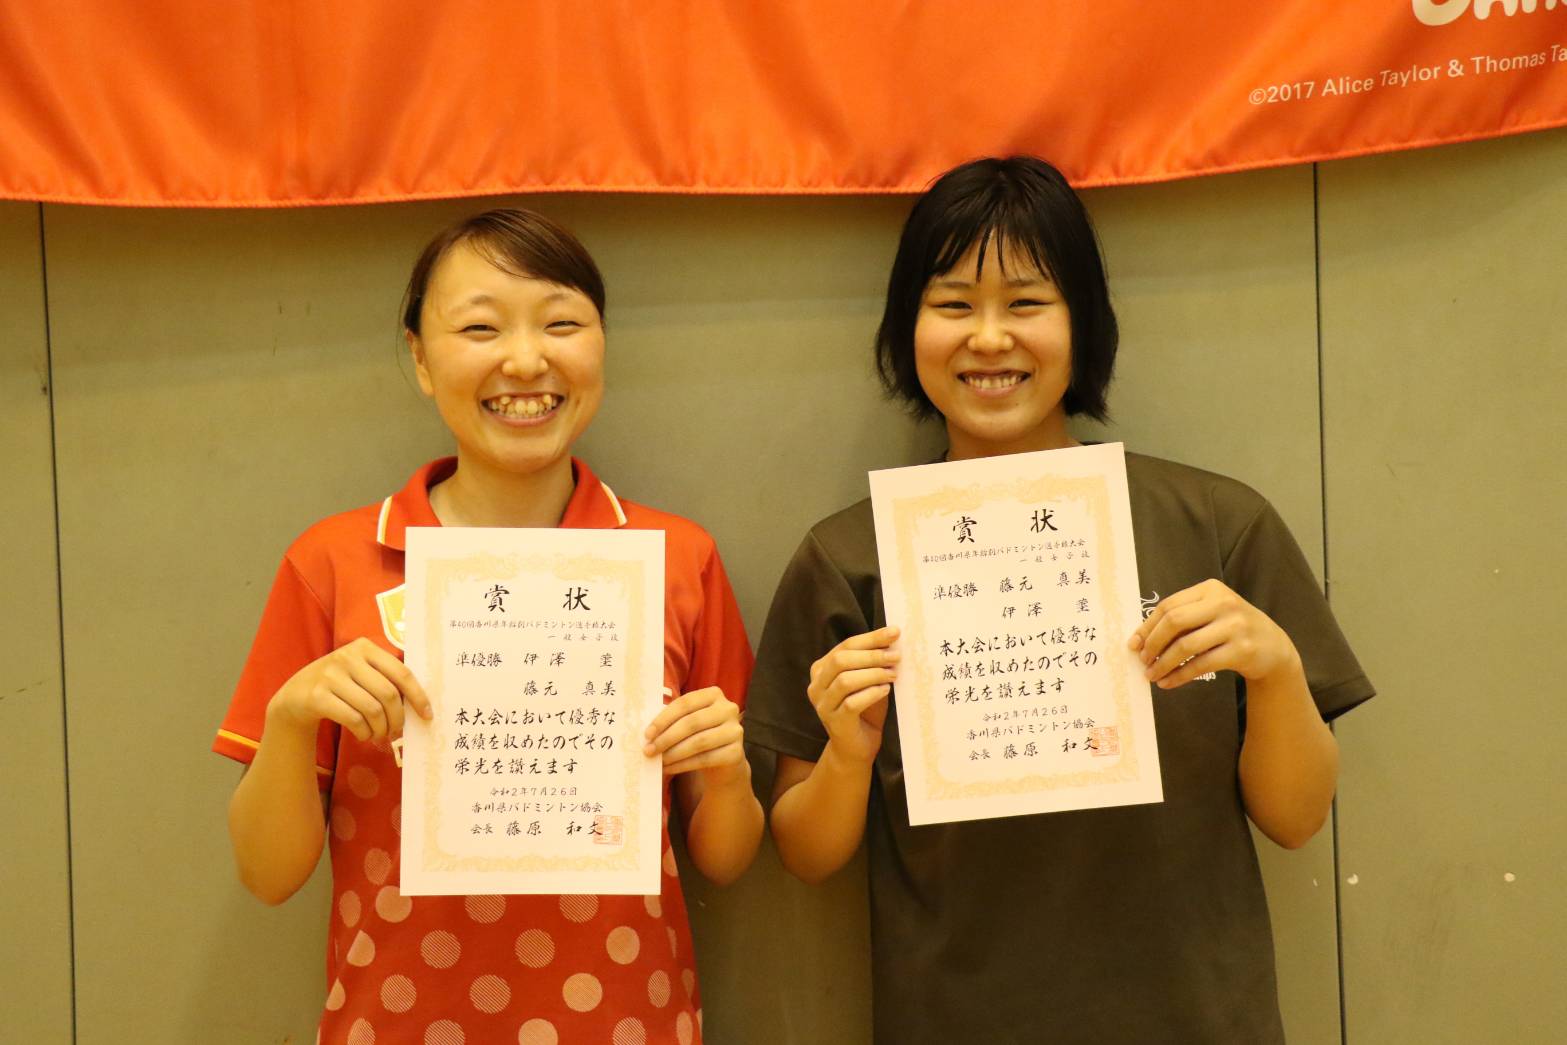 ©2017 Alice Taylor & Thomas Ta
賞 状
第40回香川県年齢別バドミントン選手権大会
一般女子複
準優勝 伊澤 蛍
藤元 真美
本大会において優秀な
成績を収めたのでその
栄光を讃えます
令和2年7月26日
香川県バドミントン協会
会長 藤原 和文
賞 状
第40回香川県年齢別バドミントン選手権大会
一般女子複
準優勝 藤元 真美
伊澤 蛍
本大会において優秀な
成績を収めたのでその
栄光を讃えます
令和2年7月26日
香川県バドミントン協会
会長 藤原 和文